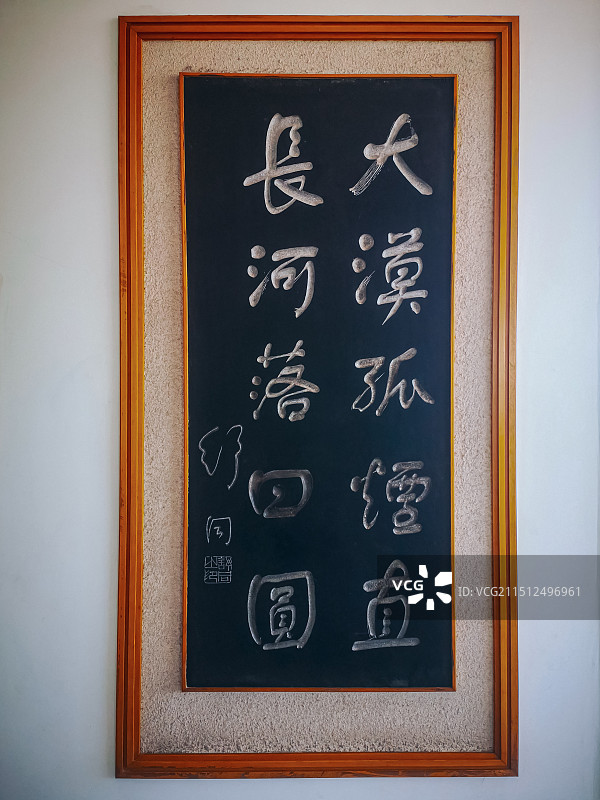 大漠孤煙直
長河落日圓
舒同
VCG
ID:VCG211512496961